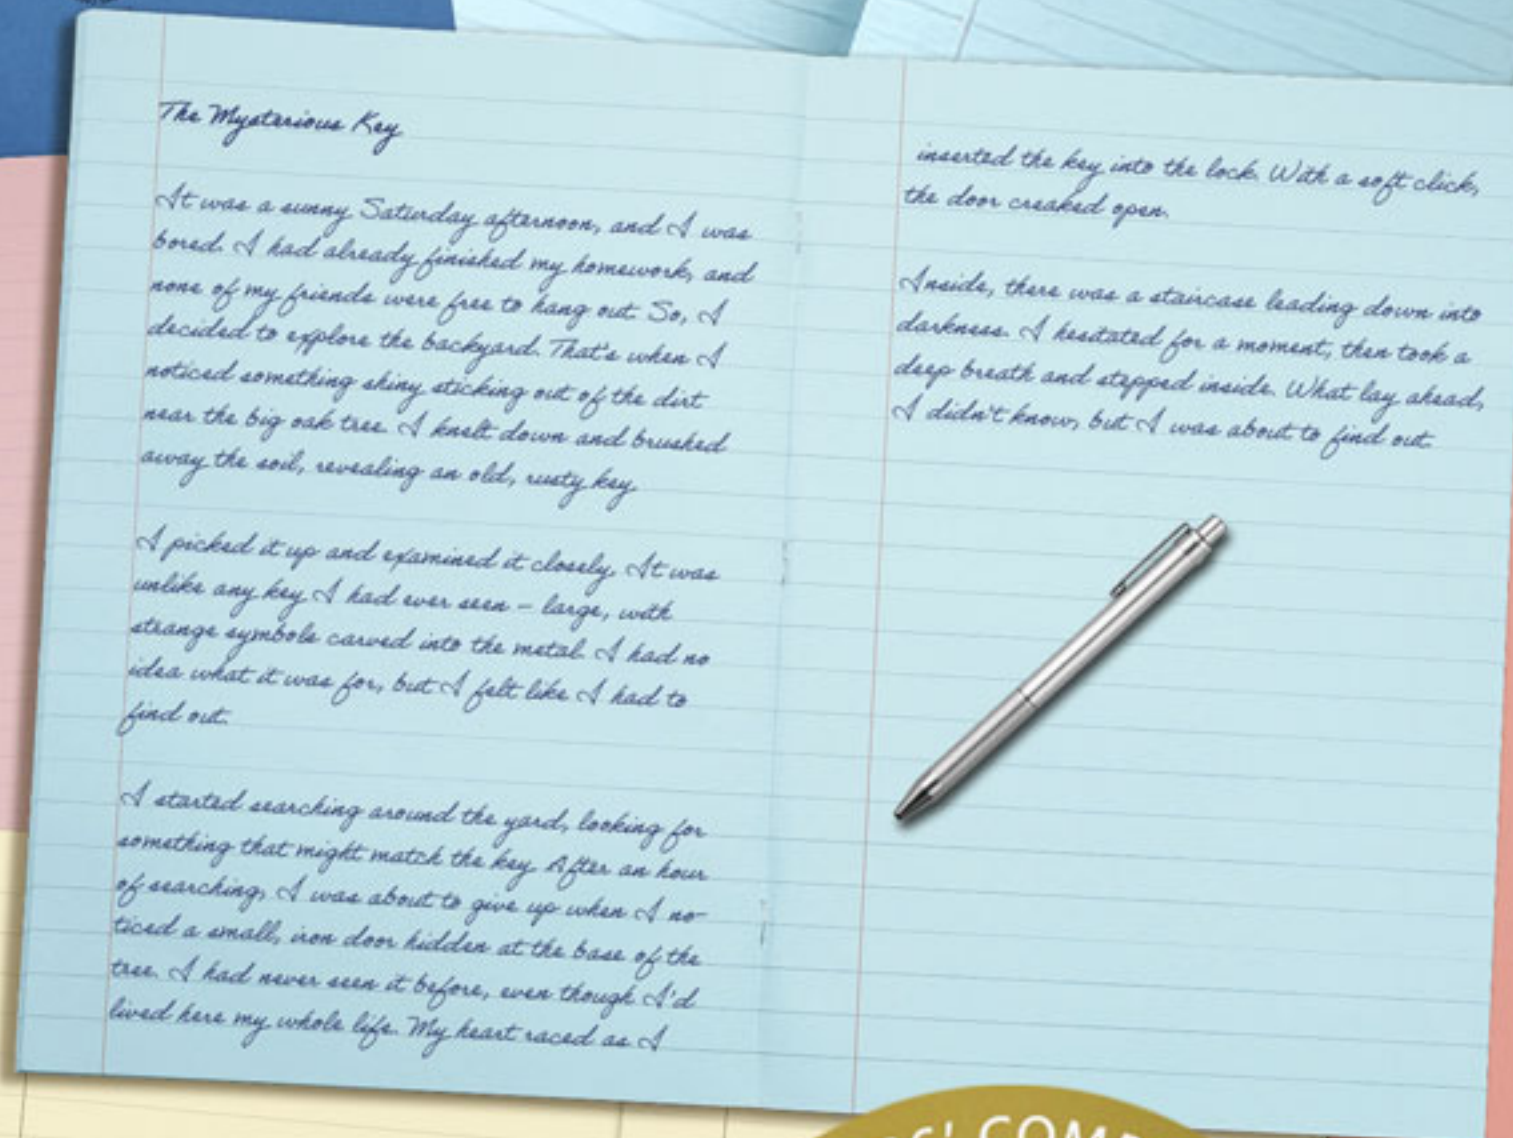 The Mysterious Key
It was a sunny Saturday afternoon, and I was
bored. I had already finished my homework, and
none of my friends were free to hang out. So, I
decided to explore the backyard. That's when I
noticed something shiny sticking out of the dirt
near the big oak tree. I knelt down and brushed
away the soil, revealing an old, rusty key.
I picked it up and examined it closely. It was
unlike any key I had ever seen – large, with
strange symbols carved into the metal. I had no
idea what it was for, but I felt like I had to
find out.
I started searching around the yard, looking for
something that might match the key. After an hour
of searching, I was about to give up when I no-
ticed a small, iron door hidden at the base of the
tree. I had never seen it before, even though I'd
lived here my whole life. My heart raced as I
inserted the key into the lock. With a soft click,
the door creaked open.
Inside, there was a staircase leading down into
darkness. I hesitated for a moment, then took a
deep breath and stepped inside. What lay ahead,
I didn't know, but I was about to find out.